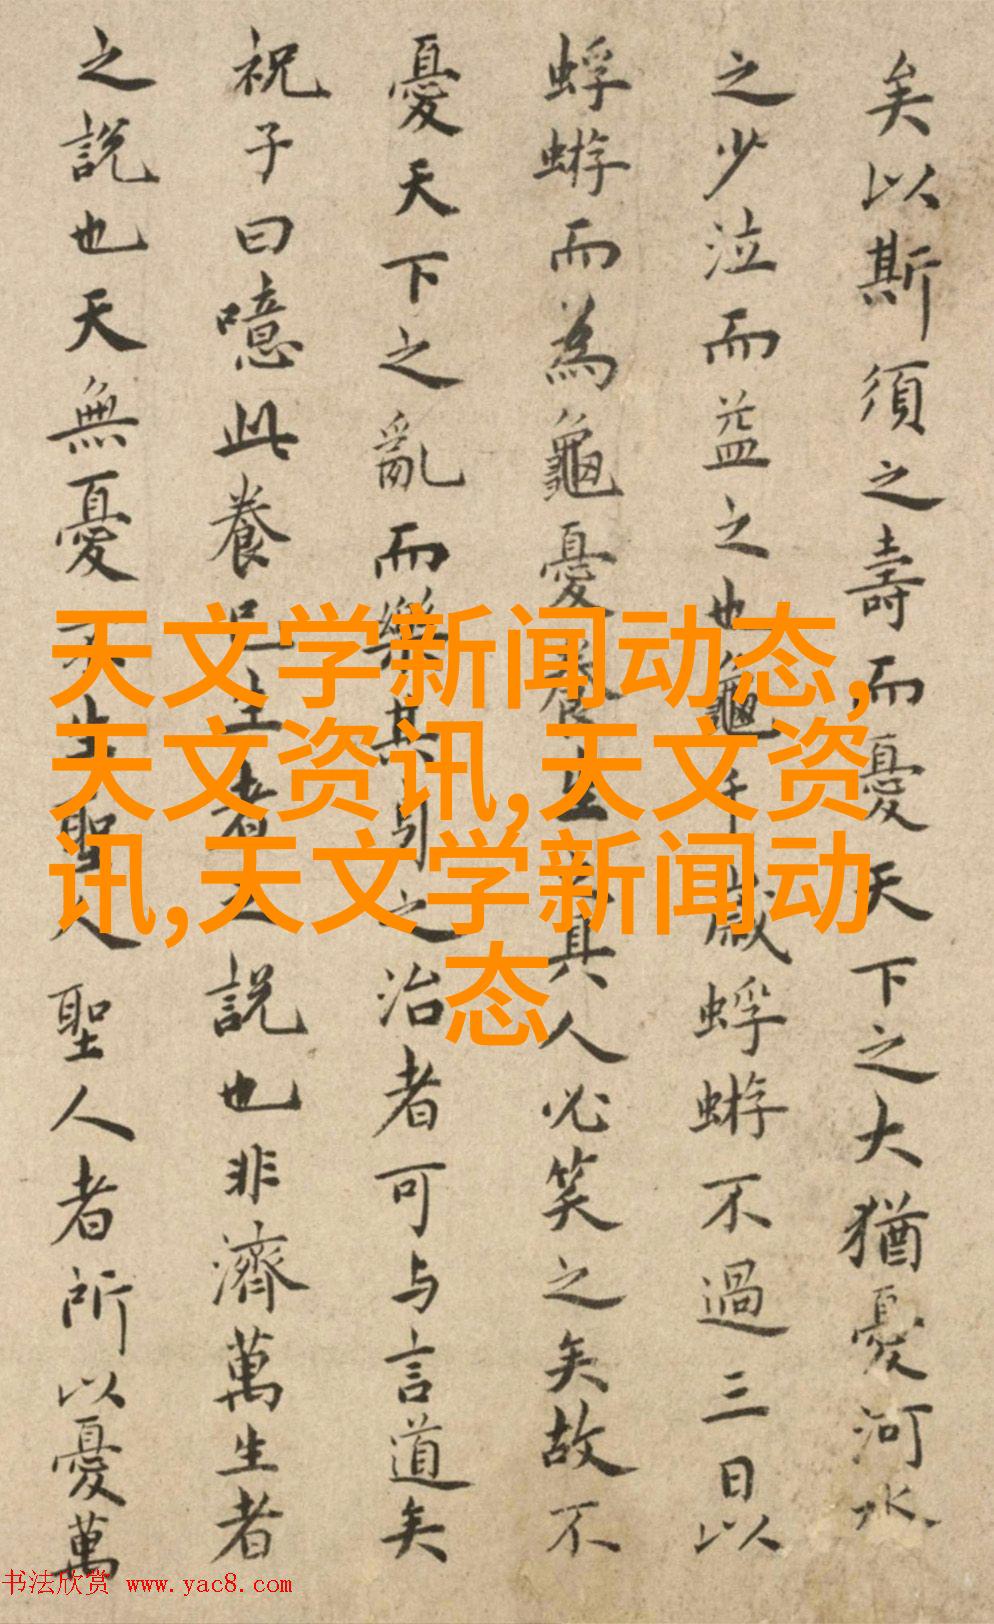 矣以斯須之壽而憂天下之大猶憂河水
之少泣而益之也龜千歲蜉蝣不過三日以
蜉蝣而為龜憂養生之具人必笑之矣故不
憂天下之亂而樂其身之治者可与言道矣
祝子曰噫此養生者之說也非濟萬生者
之說也天無憂天生聖人聖人者所以憂萬
天文学新闻动态,
天文资讯,天文资
讯,天文学新闻动
态
书法欣赏 www.yac8.com